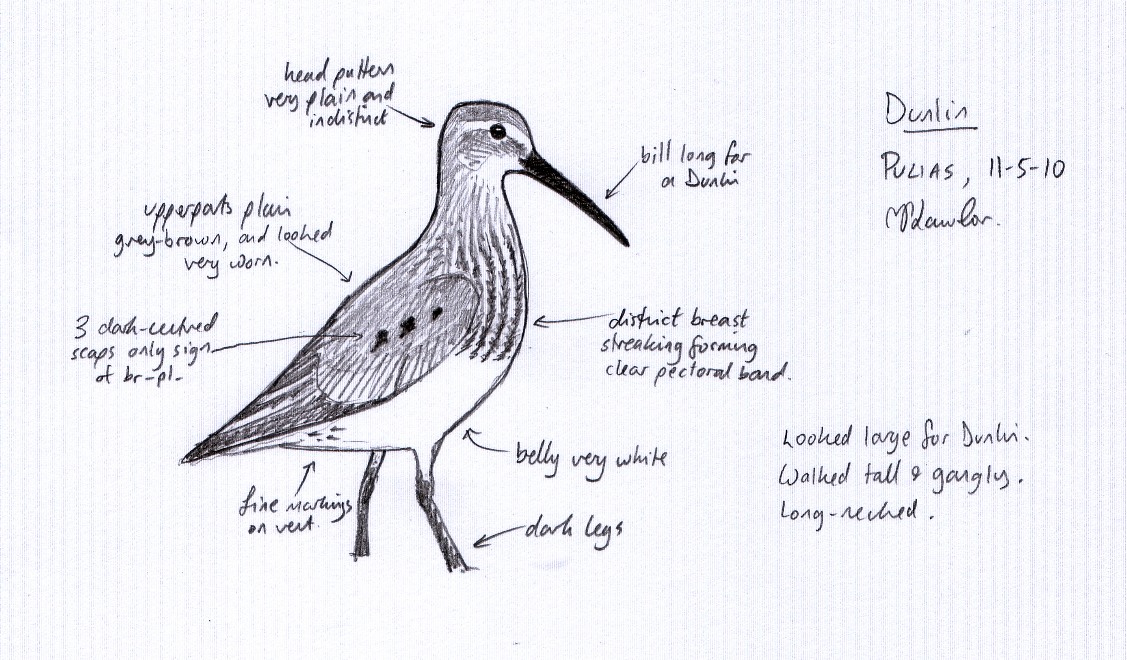 head pattern
very plain and
indistinct
bill long for
a Dunlin
Dunlin
PULIAS, 11-5-10
MLawlor.
upperparts plain
grey-brown, and looked
very worn.
3 dark-centred
scaps only sign
of br-pl.
district breast
streaking forming
clear pectoral band.
belly very white
fine markings
on vent.
dark legs
Looked large for Dunlin.
Walked tall & gangly.
Long-necked.